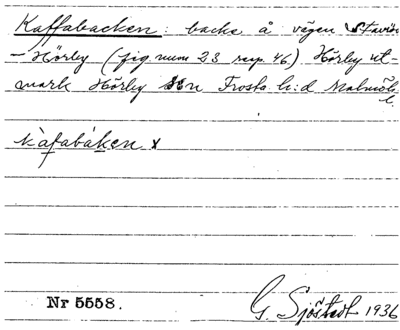 Kaffabacken: backe å vägen
—Hörby (fig num 23 resp. 46) Hörby ut-
mark Hörby sn Frosta h:d Malmöh.
l.
Nr 5558.
G. Sjöstedt 1936